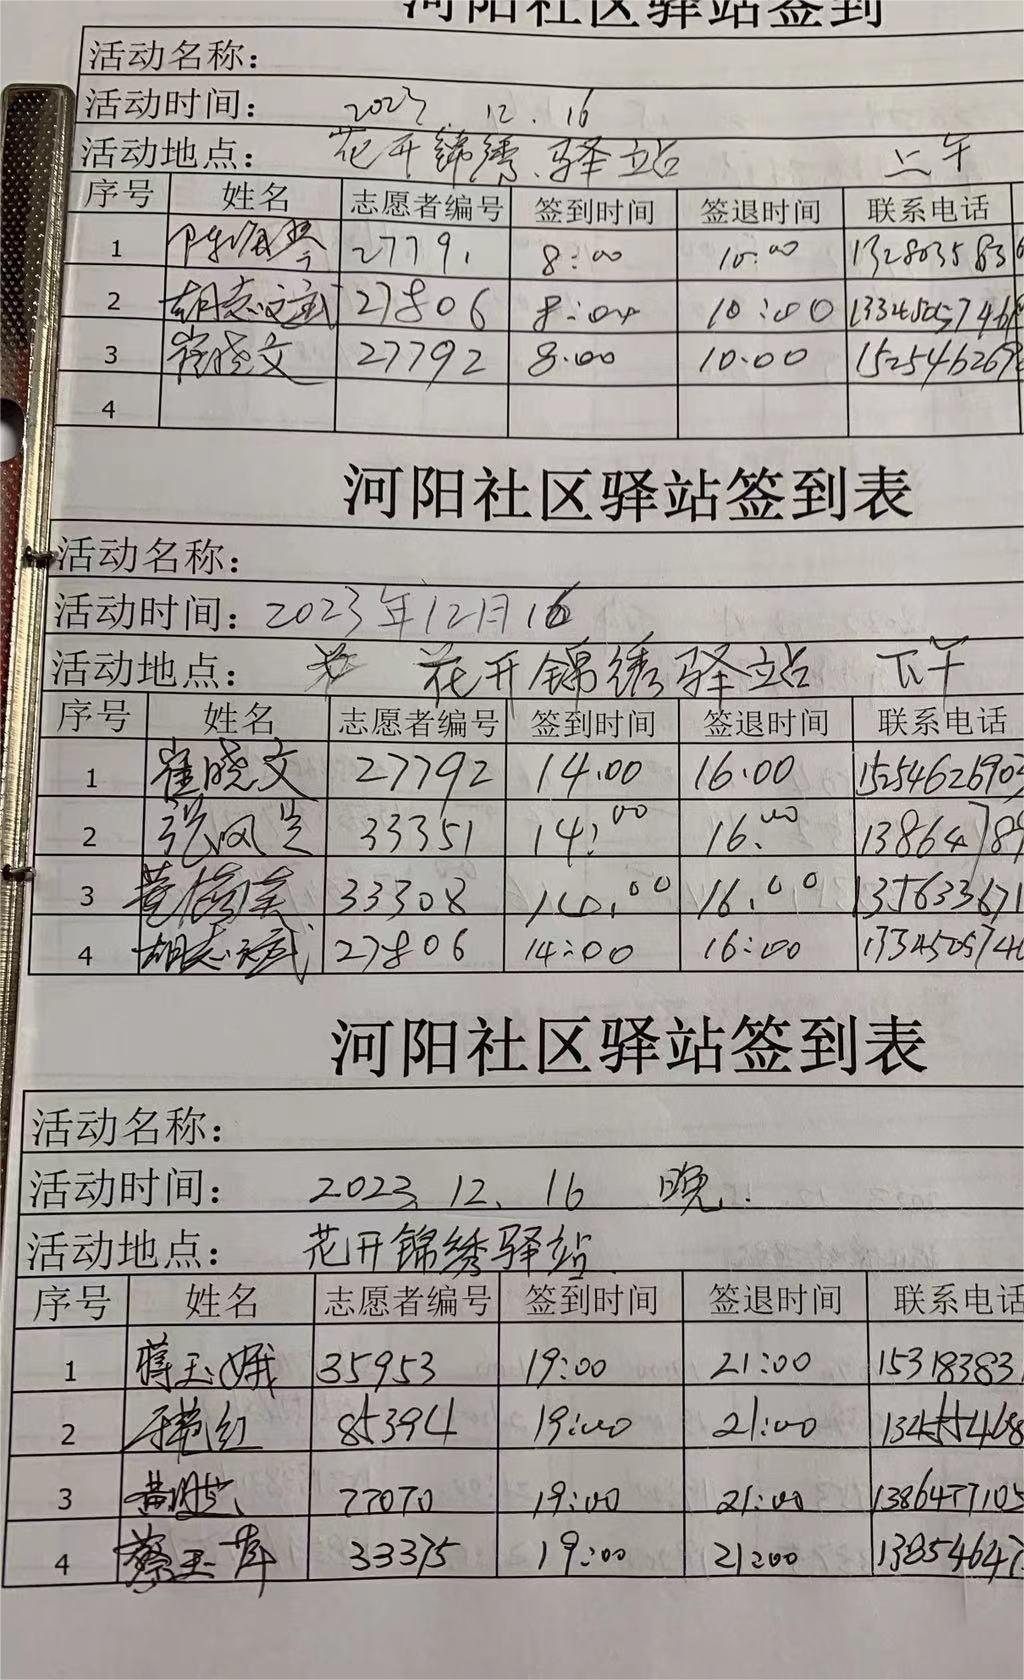 河阳社区驿站签到
活动名称：
活动时间： 2023. 12. 16
活动地点： 花开锦绣驿站 上午
序号 姓名 志愿者编号 签到时间 签退时间 联系电话
1 27791 8:00 10:00
2 胡志武 27806 8:00 10:00
3 崔晓文 27792 8:00 10:00 152546269
4
河阳社区驿站签到表
活动名称：
活动时间：2023年12月16
活动地点： 花开锦绣驿站 下午
序号 姓名 志愿者编号 签到时间 签退时间 联系电话
1 崔晓文 27792 14:00 16:00 1525462690
2 33351 14:00 16:00 1386478
3 33308 14:00 16:00 135633671
4 胡志武 27806 14:00 16:00
河阳社区驿站签到表
活动名称：
活动时间： 2023.12.16 晚.
活动地点： 花开锦绣驿站
序号 姓名 志愿者编号 签到时间 签退时间 联系电话
1 蒋玉娥 35953 19:00 21:00 15318383
2 85394 19:00 21:00
3 77070 19:00 21:00 1386477105
4 蔡玉萍 33375 19:00 21:00 13854647